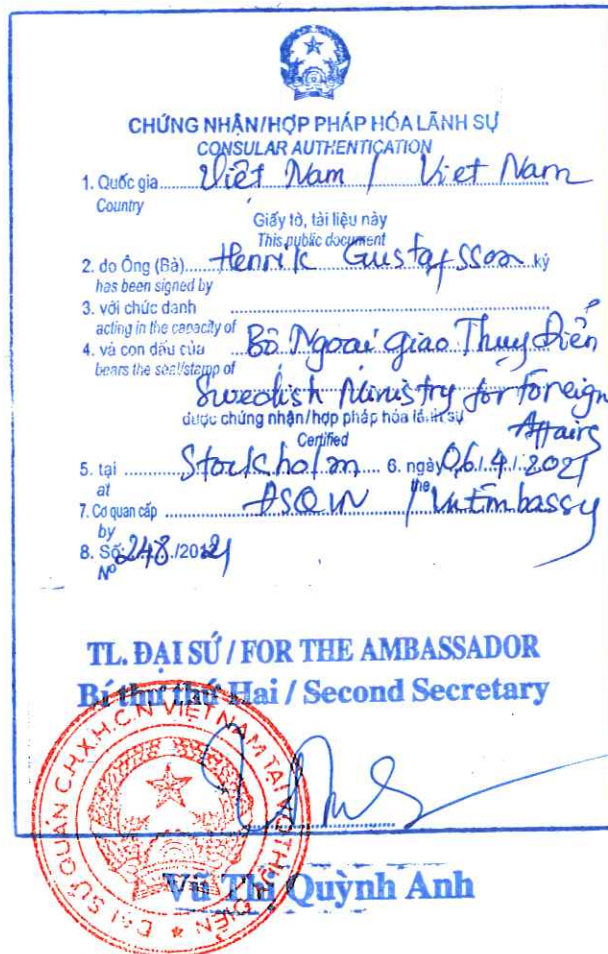 CHỨNG NHẬN/HỢP PHÁP HÓA LÃNH SỰ
CONSULAR AUTHENTICATION
1. Quốc gia Việt Nam / Viet Nam
Country
Giấy tờ, tài liệu này
This public document
2. do Ông (Bà) Henrik Gustafsson ký
has been signed by
3. với chức danh
acting in the capacity of
4. và con dấu của Bộ Ngoại giao Thụy Điển
bears the seal/stamp of
Swedish Ministry for Foreign
Affairs
được chứng nhận/hợp pháp hóa lãnh sự
Certified
5. tại Stockholm 6. ngày 06/4/2021
at the
7. Cơ quan cấp ĐSQVN / Vn Embassy
by
8. Số: 248/2021
Nº
TL. ĐẠI SỨ / FOR THE AMBASSADOR
Bí thư thứ Hai / Second Secretary
ĐẠI SỨ QUÁN C.H.X.H.C.N VIỆT NAM TẠI THỤY ĐIỂN
Vũ Thị Quỳnh Anh